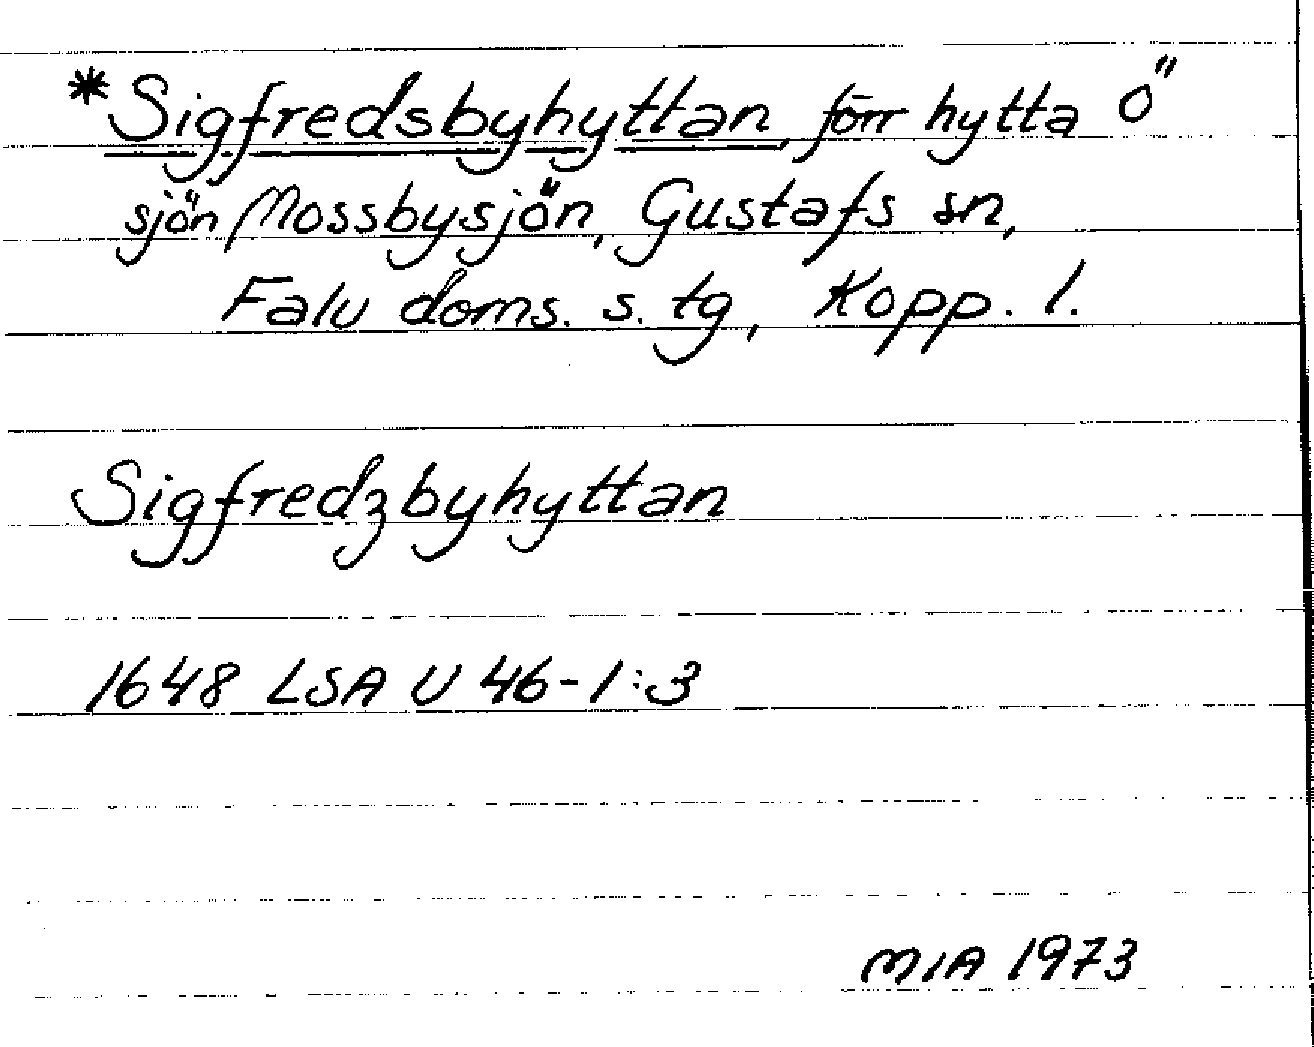 *Sigfredsbyhyttan, förr hytta ö
sjön Mossbysjön, Gustafs sn,
Falu doms. s. tg, Kopp. l.
Sigfredzbyhyttan
1648 LSA U 46-1:3
MIA 1973